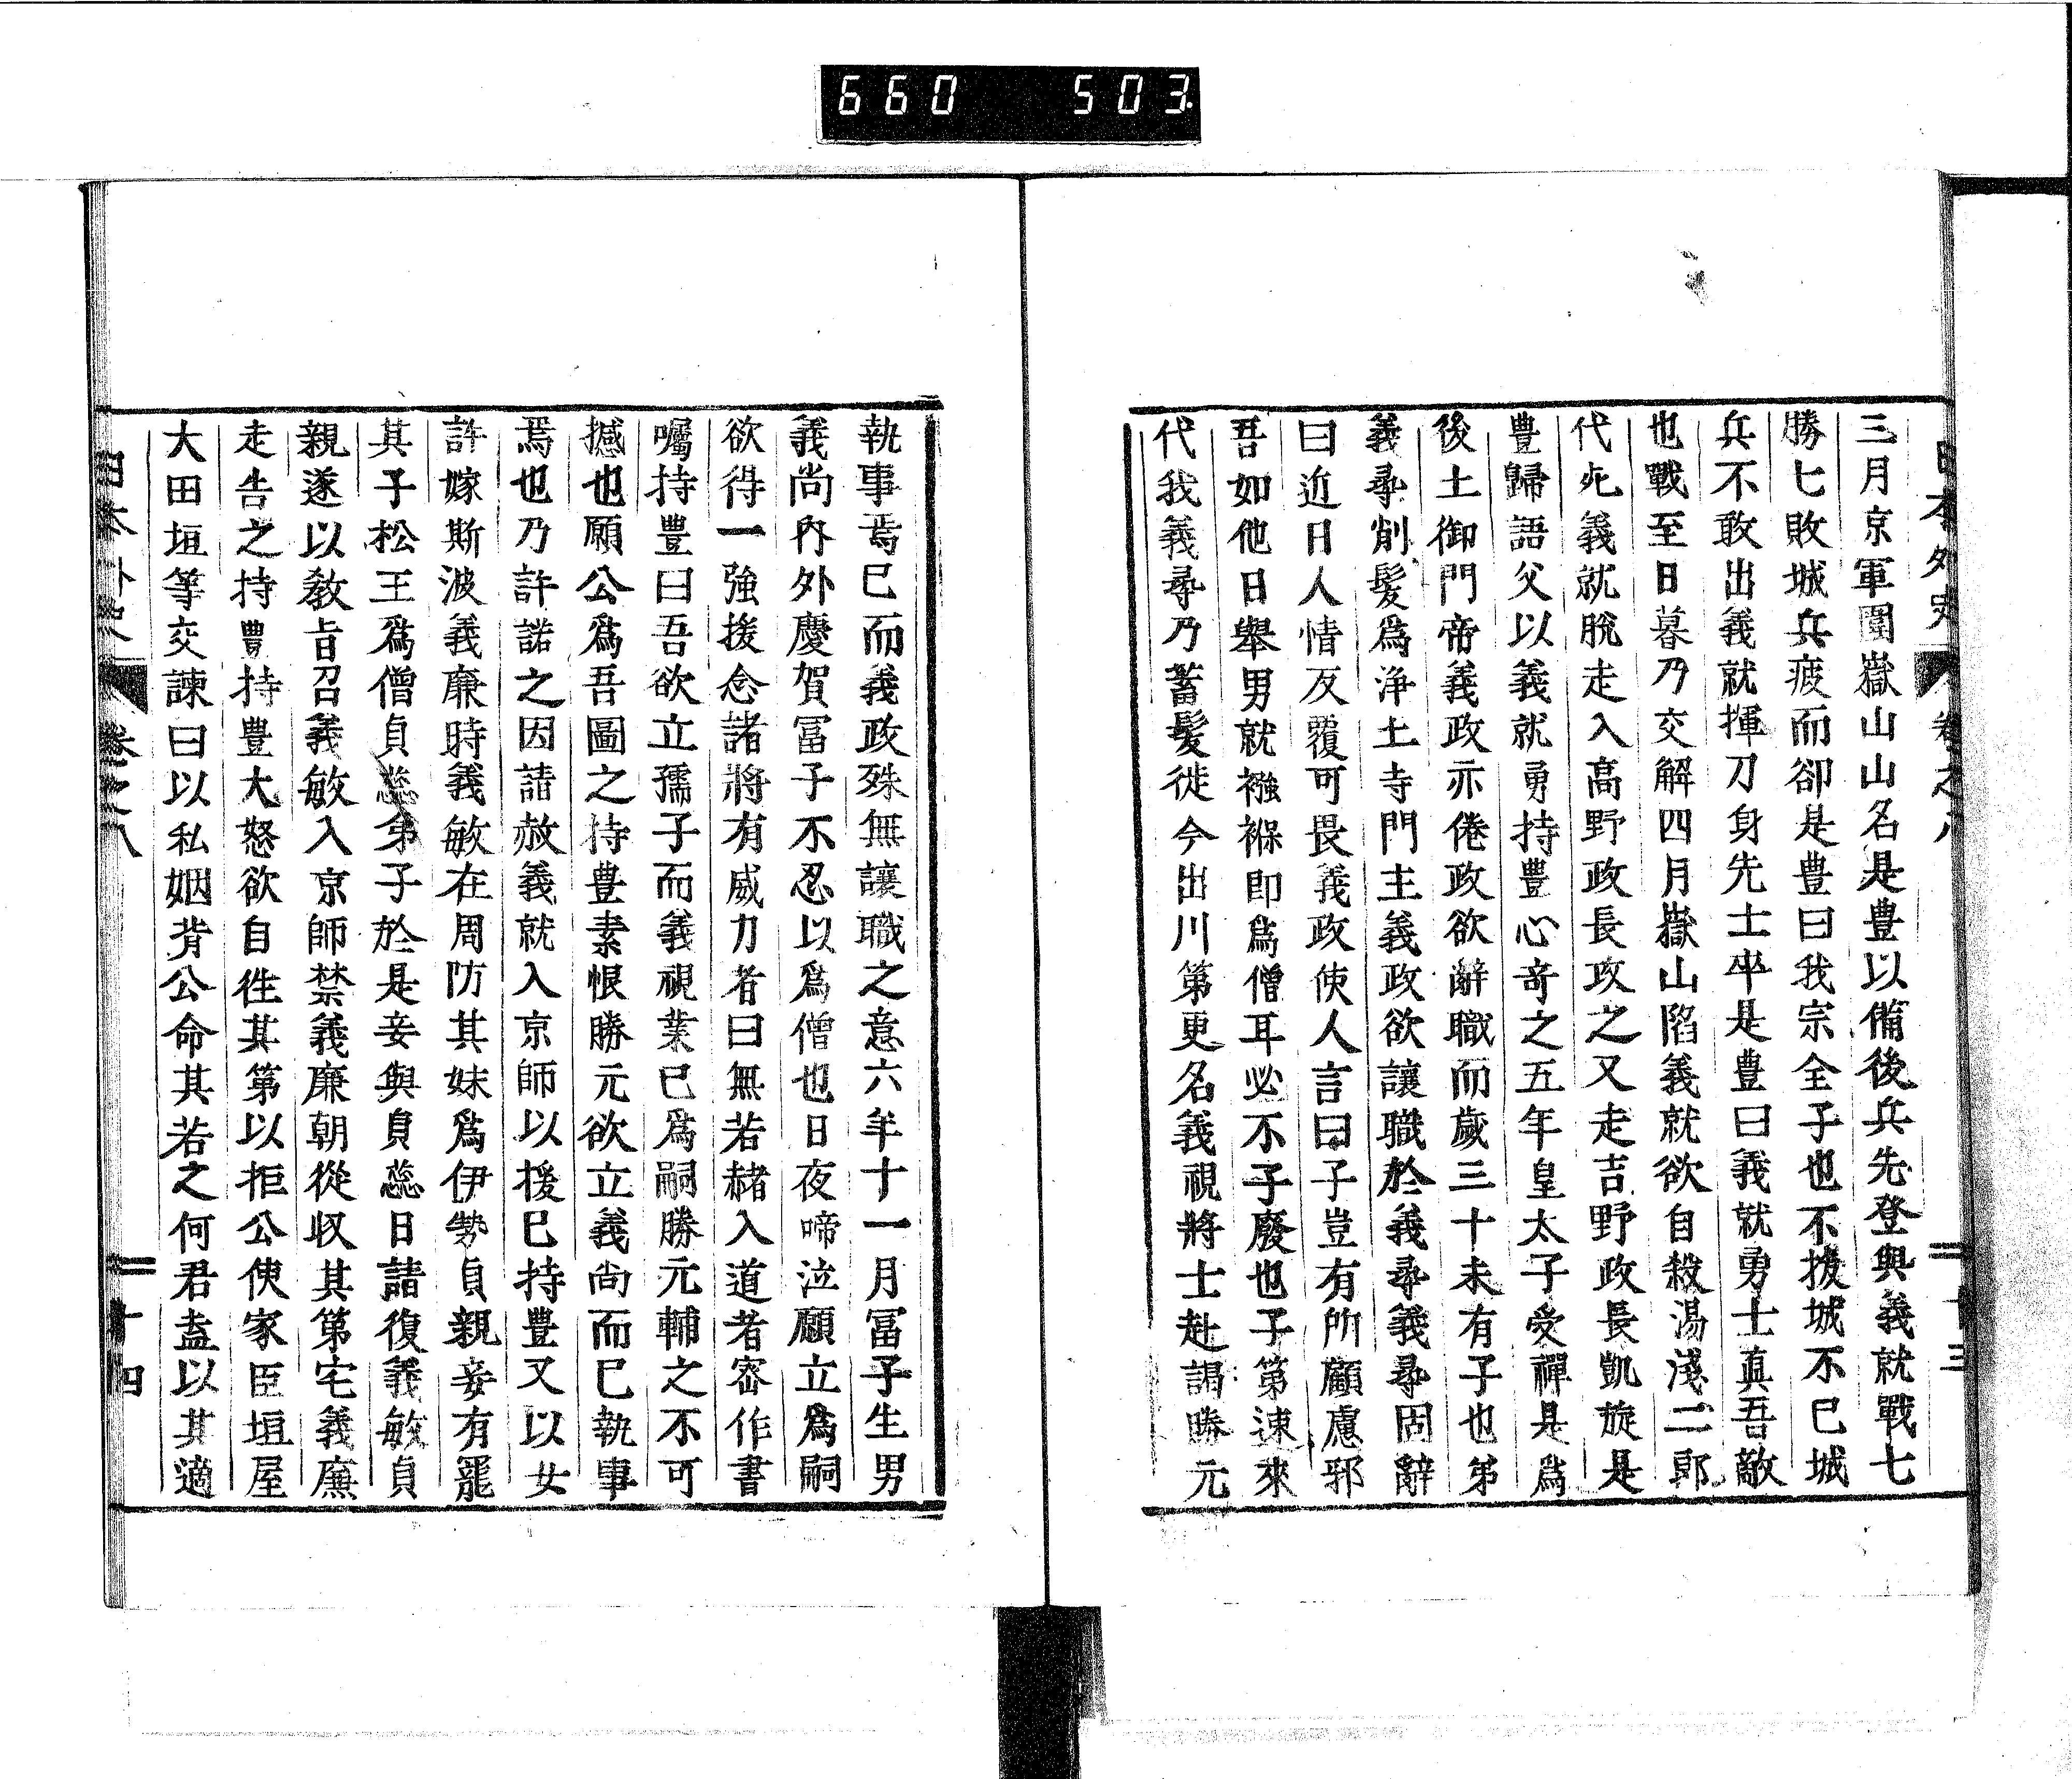 660 503.
日本外史 卷之八 十三
三月京軍圍嶽山山名是豊以備後兵先登與義就戰七
勝七敗城兵疲而卻是豊曰我宗全子也不拔城不已城
兵不敢出義就揮刀身先士卒是豊曰義就勇士真吾敵
也戰至日暮乃交解四月嶽山陷義就欲自殺湯淺二郎
代死義就脫走入高野政長攻之又走吉野政長凱旋是
豊歸語父以義就勇持豊心奇之五年皇太子受禪是爲
後土御門帝義政亦倦政欲辭職而歲三十未有子也弟
義尋削髮爲淨土寺門主義政欲讓職於義尋義尋固辭
曰近日人情反覆可畏義政使人言曰子豈有所顧慮邪
吾如他日舉男就襁褓即爲僧耳必不子廢也子第速來
代我義尋乃蓄髮徙今出川第更名義視將士赴謁勝元
執事焉已而義政殊無讓職之意六年十一月冨子生男
義尚內外慶賀冨子不忍以爲僧也日夜啼泣願立爲嗣
欲得一強援念諸將有威力者曰無若赭入道者密作書
囑持豊曰吾欲立孺子而義視業已爲嗣勝元輔之不可
撼也願公爲吾圖之持豊素恨勝元欲立義尚而已執事
焉也乃許諾之因請赦義就入京師以援已持豊又以女
許嫁斯波義廉時義敏在周防其妹爲伊勢貞親妾有寵
其子松王爲僧貞蕊弟子於是妾與貞蕊日請復義敏貞
親遂以教旨召義敏入京師禁義廉朝從収其第宅義廉
走告之持豊持豊大怒欲自徃其第以拒公使家臣垣屋
大田垣等交諫曰以私姻背公命其若之何君盍以其適
日本外史 卷之八 十四